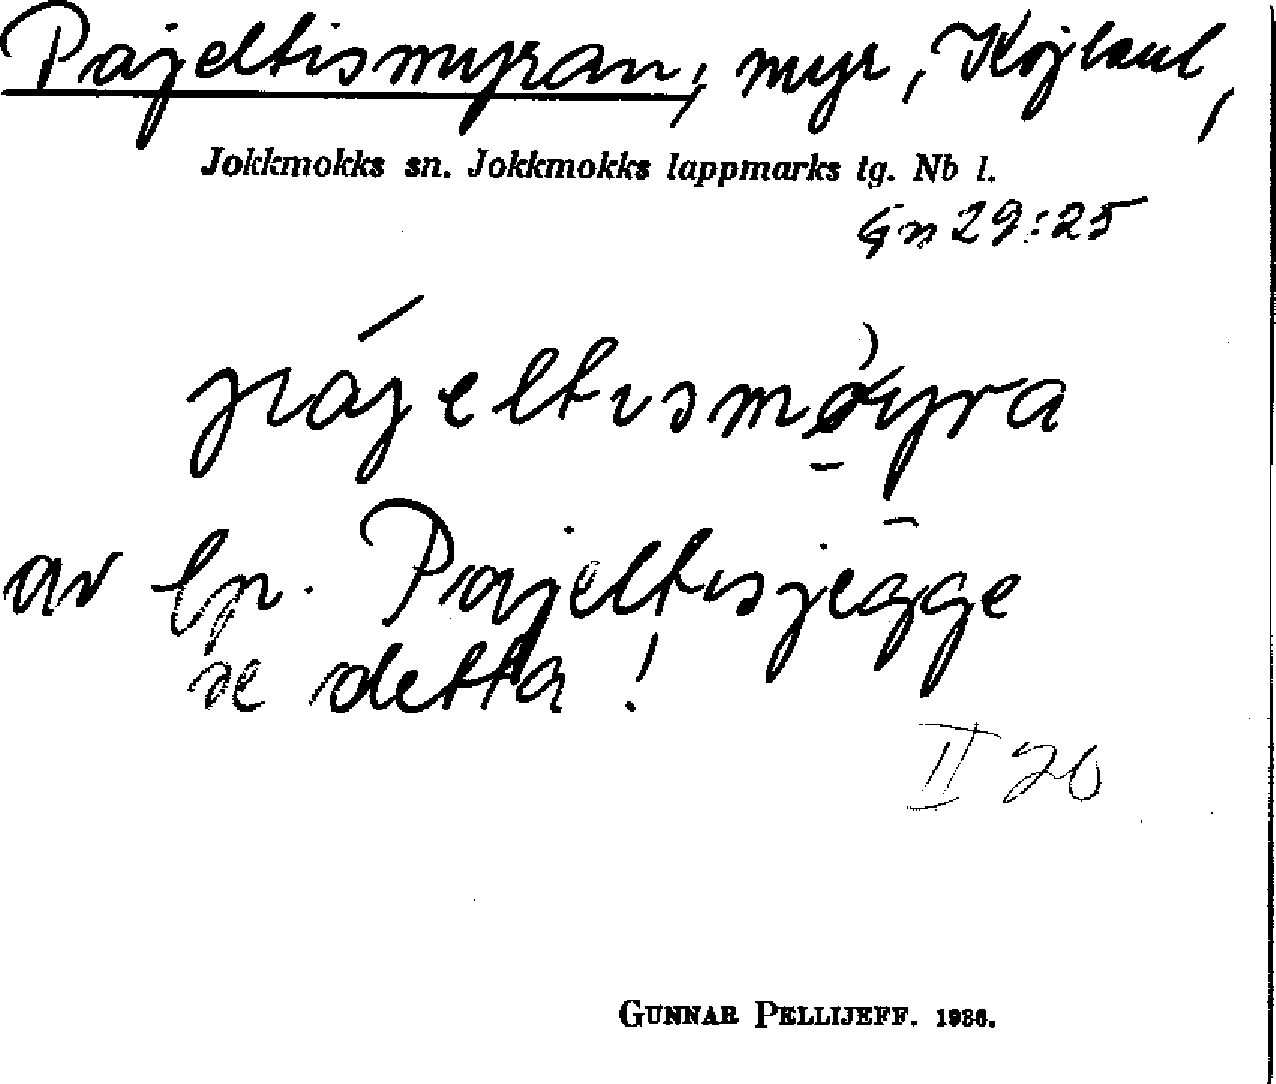 Pajeltismyran, myr, Kojlaul,
Jokkmokks sn. Jokkmokks lappmarks tg. Nb l.
Gn 29:25
av lp. Pajeltisjegge
se detta!
II 20
GUNNAR PELLIJEFF. 1936.